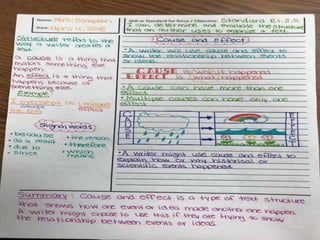 Name: Mrs. Simpson
Skill or Standard for Focus / Objective: Standard RI.2.5
I can determine and evaluate the structure
that an author uses to organize a text.
Structure refers to the
way a writer creates a
text.
A cause is a thing that
makes something else
happen.
An effect is a thing that
happens because of
something else.
Example:
Signal words
• because
• as a result
• due to
• since
• the reason
• therefore
• which
means
Cause and effect
• A writer will use cause and effect to
show the relationship between events
or ideas.
CAUSE = why it happened
EFFECT = what happened
• A cause can have more than one
effect
• Multiple causes can have only one
effect
CAUSE
EFFECT
• A writer might use cause and effect to
explain how or why historical or
scientific events happened.
Summary: Cause and effect is a type of text structure
that shows how one event or idea made another one happen.
A writer might choose to use this if they are trying to show
the relationship between events or ideas.